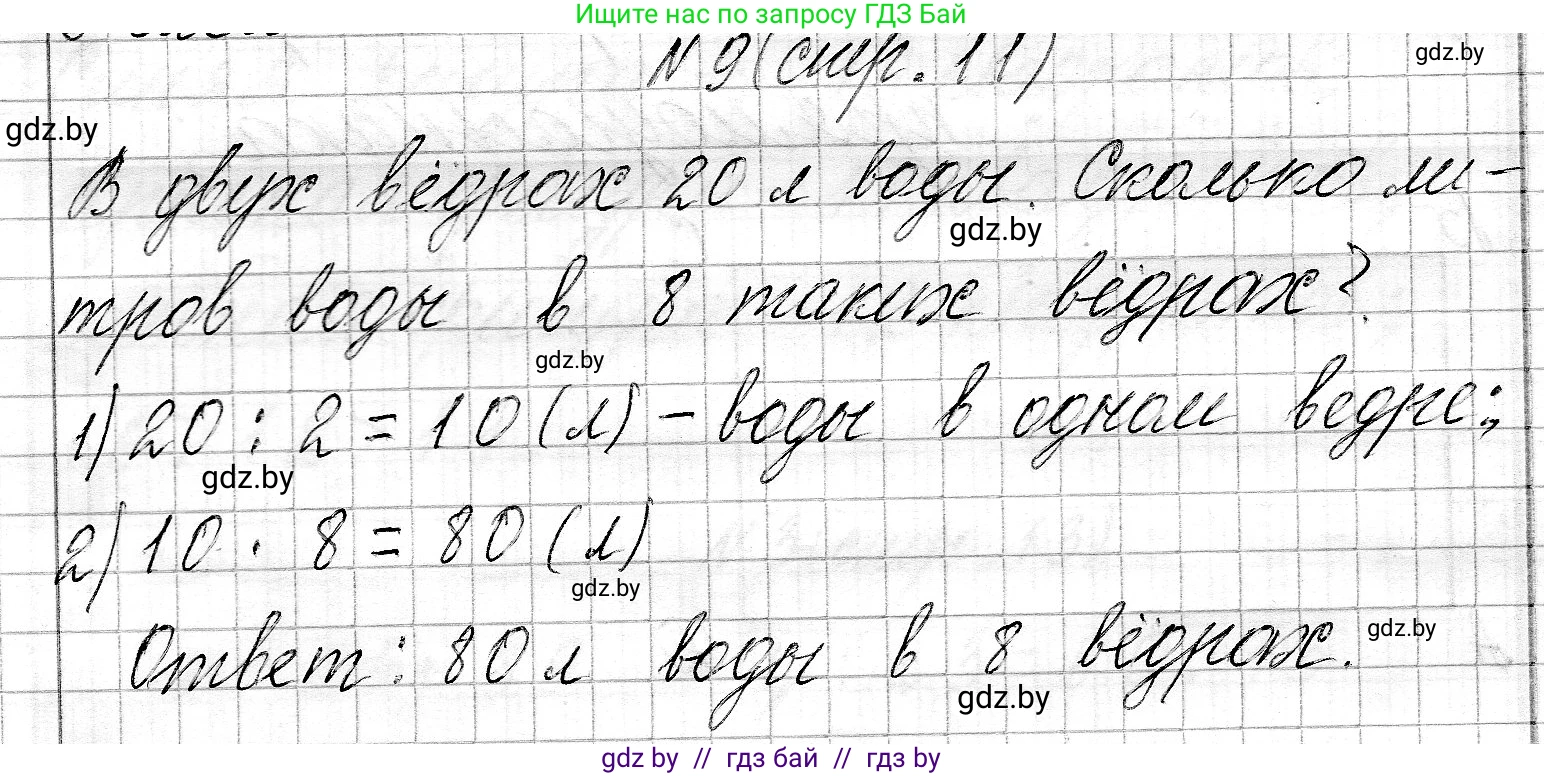 Ищите нас по запросу ГДЗ Бай
№ 9 (стр. 11)
gdz.by
gdz.by
В двух вёдрах 20 л воды. Сколько ли-
gdz.by
тров воды в 8 таких вёдрах?
gdz.by
1) 20 : 2 = 10 (л) – воды в одном ведре;
gdz.by
2) 10 · 8 = 80 (л)
gdz.by
Ответ: 80 л воды в 8 вёдрах.
gdz.by
gdz.by
gdz by // гдз бай // гдз by